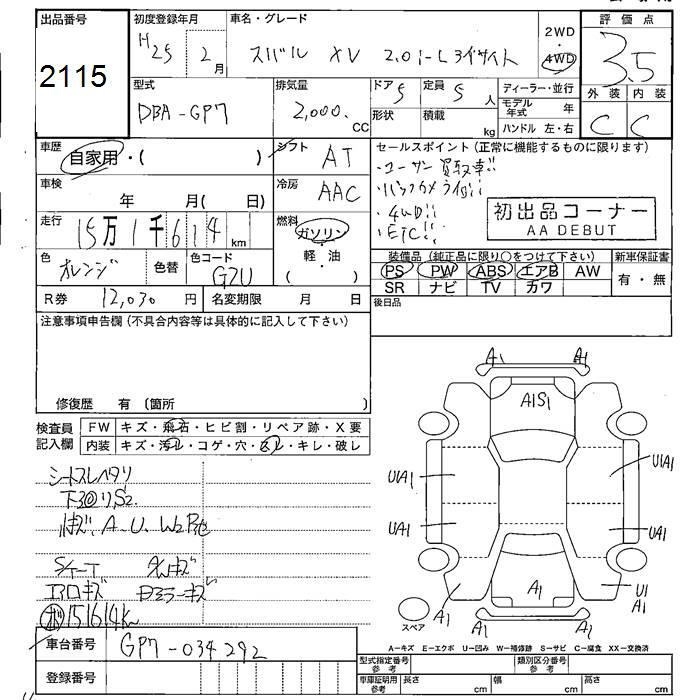 出品番号
2115
初度登録年月
H25 2月
車名・グレード
スバル XV 2.0i-L アイサイト
2WD
・
4WD
評価点
3.5
外装 内装
C C
型式
DBA-GP7
排気量
2,000. CC
ドア 5
定員 5人
形状
積載 kg
ディーラー・並行
モデル年式 年
ハンドル 左・右
車歴
自家用・( )
シフト
AT
車検
年 月( 日)
冷房
AAC
走行
15万1千614km
燃料
ガソリン
軽・油
( )
色
オレンジ
色替
色コード
G7U
R券 12,030円
名変期限 月 日
セールスポイント(正常に機能するものに限ります)
・ユーザー買取車!!
・バックカメラ
・4WD!!
・ETC!!
初出品コーナー
AA DEBUT
装備品(純正品に限り○をつけて下さい)
PS PW ABS エアB AW
SR ナビ TV カワ
新車保証書
有・無
後日品
注意事項申告欄(不具合内容等は具体的に記入して下さい)
修復歴 有(箇所 )
検査員
記入欄
FW キズ・飛石・ヒビ割・リペア跡・X要
内装 キズ・汚レ・コゲ・穴・スレ・キレ・破レ
シートスレヘタリ
キズ、A、U、W2
キズ
151614K
車台番号
GP7-034292
登録番号
A1 A1
A1S1
UA1 U1A1
UA1 UA1
A1
A1
U1
A1
A1 A1
スペア
A=キズ E=エクボ U=凹み W=補修跡 S=サビ C=腐食 XX=交換済
型式指定番号
参考
類別区分番号
参考
車庫証明用
参考
長さ cm
幅 cm
高さ cm